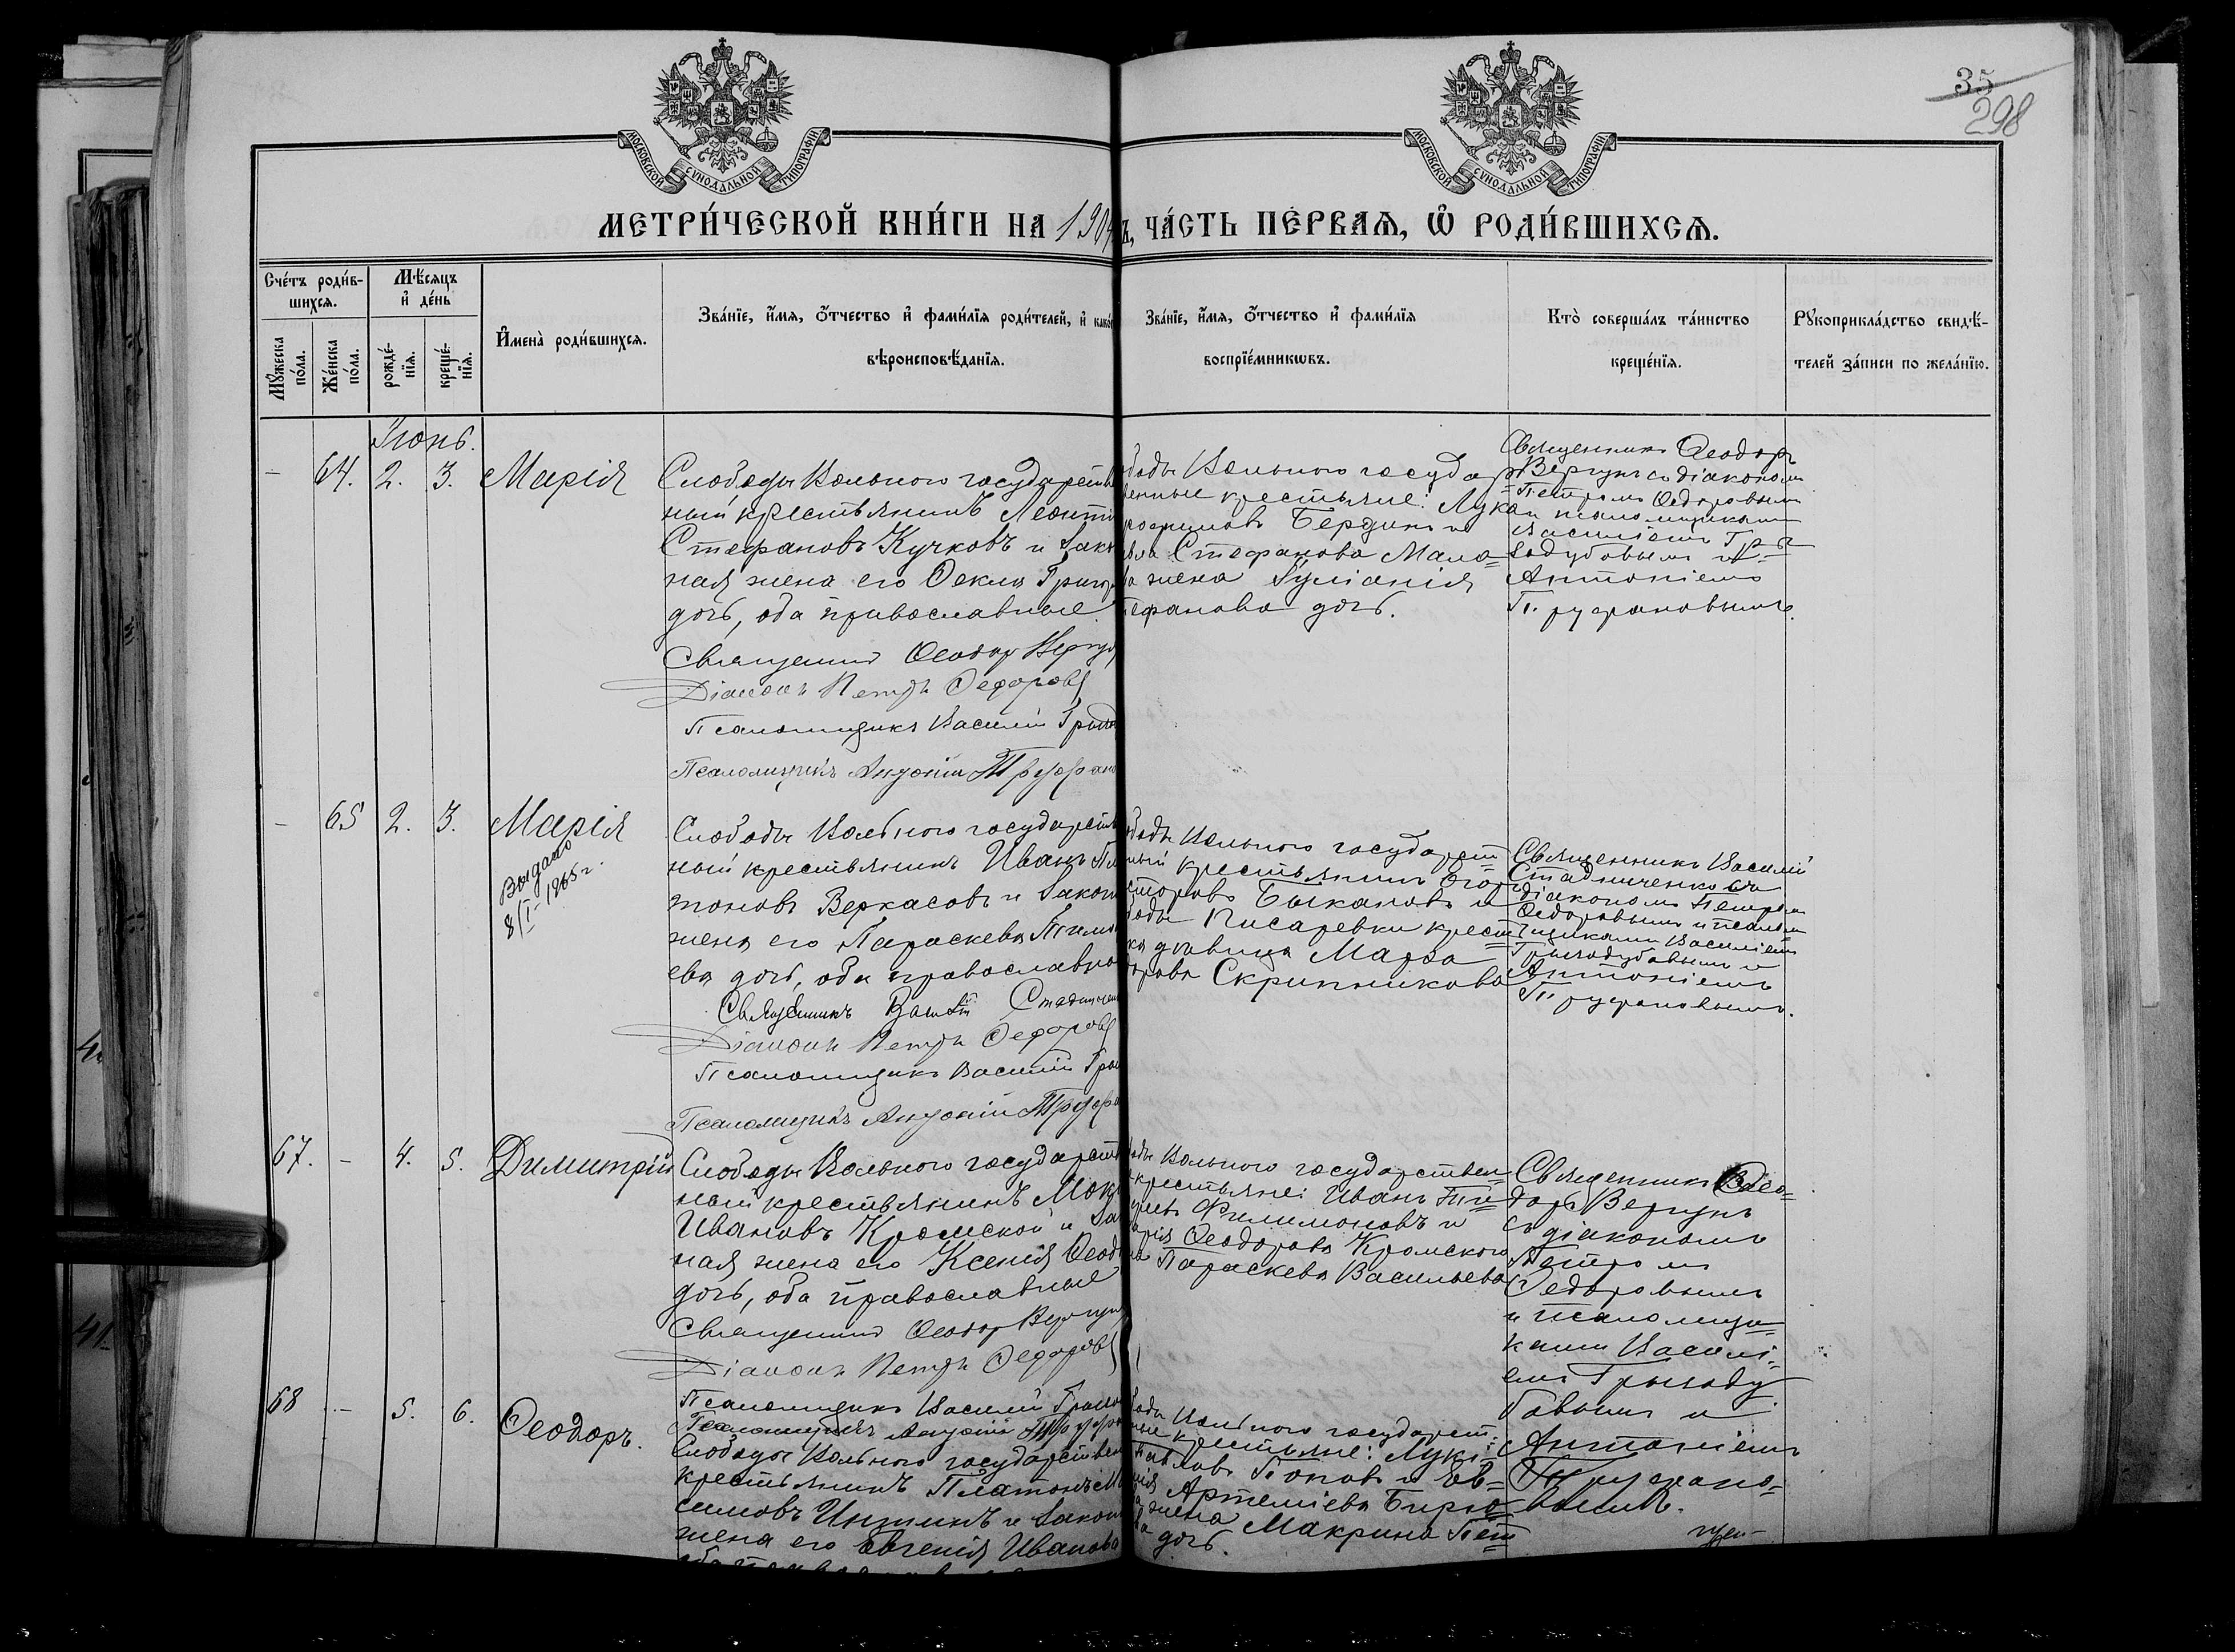 35
298
МОСКОВСКОЙ СУНОДАЛЬНОЙ ТИПОГРАФІИ
МОСКОВСКОЙ СУНОДАЛЬНОЙ ТИПОГРАФІИ
МЕТРИ́ЧЕСКОЙ КНИ́ГИ НА 1904
Ъ, ЧА́СТЬ ПЕ́РВАѦ, Ѿ РОДИ́ВШИХСѦ.
Сче́тъ роди́в-
шихсѧ.
Мꙋ́жеска по́ла.
Же́нска по́ла.
Мѣ́сѧцъ и де́нь
рожде́-нїѧ.
креще́-нїѧ.
И҆мена̀ роди́вшихсѧ.
Зва́нїе, и҆́мѧ, ѻ҆́тчество и҆ фами́лїѧ роди́телей, и҆ како́
вѣроисповѣ́данїѧ.
Зва́нїе, и҆́мѧ, ѻ҆́тчество и҆ фами́лїѧ
воспрїе́мникѡвъ.
Кто̀ соверша́лъ та́инство
креще́нїѧ.
Рꙋкоприкла́дство свидѣ́-
телей за́писи по жела́нїю.
Іюнь.
- 64. 2. 3. Марія
Слободы Вольного государствен
ный крестьянинъ Леонтій
Стефановъ Кучковъ и зако
ная жена его Ѳекла Григор
дочь, оба православные.
Священникъ Ѳеодор Вергун
Діаконъ Петръ Ѳедоровъ
Псаломщикъ Василій Грызод
Псаломщикъ Антоній Труфано
боды Вольного государ
венные крестьяне: Лука
рофимовъ Бердик и
Стефанова Мала=
жена Іуліанія
тефанова дочь.
Священникъ Ѳеодоръ
Вергунъ съ діакономъ
Петромъ Ѳедоровымъ
и псаломщиками
Василіемъ Гры
зодубовымъ и
Антоніемъ
Труфановымъ.
- 65 2. 3. Марія
Выдано
8/I-1965 г.
Слободы Вольного государств
ный крестьянинъ Иванъ Пла
тоновъ Веркасовъ и закон
жена его Параскева Тимо
ева дочь, оба православно
Священникъ Василій Стадничен
Діаконъ Петръ Ѳедоровъ
Псаломщикъ Василій Гры
Псаломщикъ Антоній Труфа
ободы Вольного государст
ный крестьянинъ Егоръ
сторовъ Быкановъ и
боды Писаревки крест
ка дѣвица Марѳа
дорова Скрипникова
Священникъ Василій
Стадниченко съ
діакономъ Петромъ
Ѳедоровымъ и псалом
щиками Василіемъ
Грызодубовымъ и
Антоніемъ
Труфановымъ.
67. - 4. 5. Димитрій
Слободы Вольного государст
ный крестьянинъ Моке
Ивановъ Кромской и за
ная жена его Ксенія Ѳеодо
дочь, оба православные
Священникъ Ѳеодор Вергун
Діаконъ Петръ Ѳедоровъ
Псаломщикъ Василій Грызо
Псаломщикъ Антоній Труфа
оды Вольного государствен
крестьяне: Иванъ
Филимоновъ и
арія Ѳеодорова Кромского
на Параскева Васильева
Священникъ Ѳео=
доръ Вергунъ
съ діакономъ
Петромъ
Ѳедоровымъ
и псаломщи=
ками Василі=
емъ Грызоду
бовымъ и
Антоніемъ
Труфано=
вымъ.
68 - 5. 6. Ѳеодоръ.
Слободы Вольного государствен
крестьянинъ Платонъ М
симовъ Ишинъ и закон
жена его Евгенія Иванова
боды Вольного государст.
ные крестьяне: Луки
Павловъ Поповъ и Ев=
Артеміева Бирю
жена Макрина Пет
дочь.